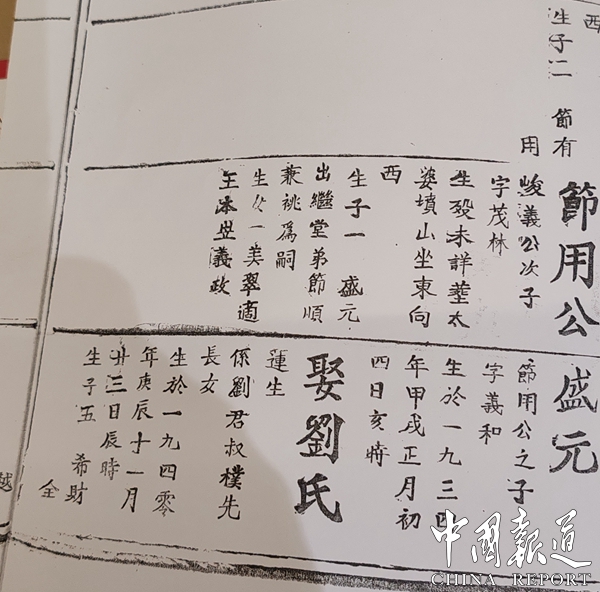 西
生子二 節有
用
節用公
峻義公次子
字茂林
生殁未詳塟太
婆墳山坐東向
西
生子一 盛元
出繼堂弟節順
兼祧爲嗣
生女一美翠適
王本義政
盛元
節用公之子
字義和
生於一九三四
年甲戌正月初
四日亥時
娶劉氏
蓮生
係劉君叔樸先
長女
生於一九四零
年庚辰十一月
廿三日辰時
生子五 希財
全
越
中国報道
CHINA REPORT